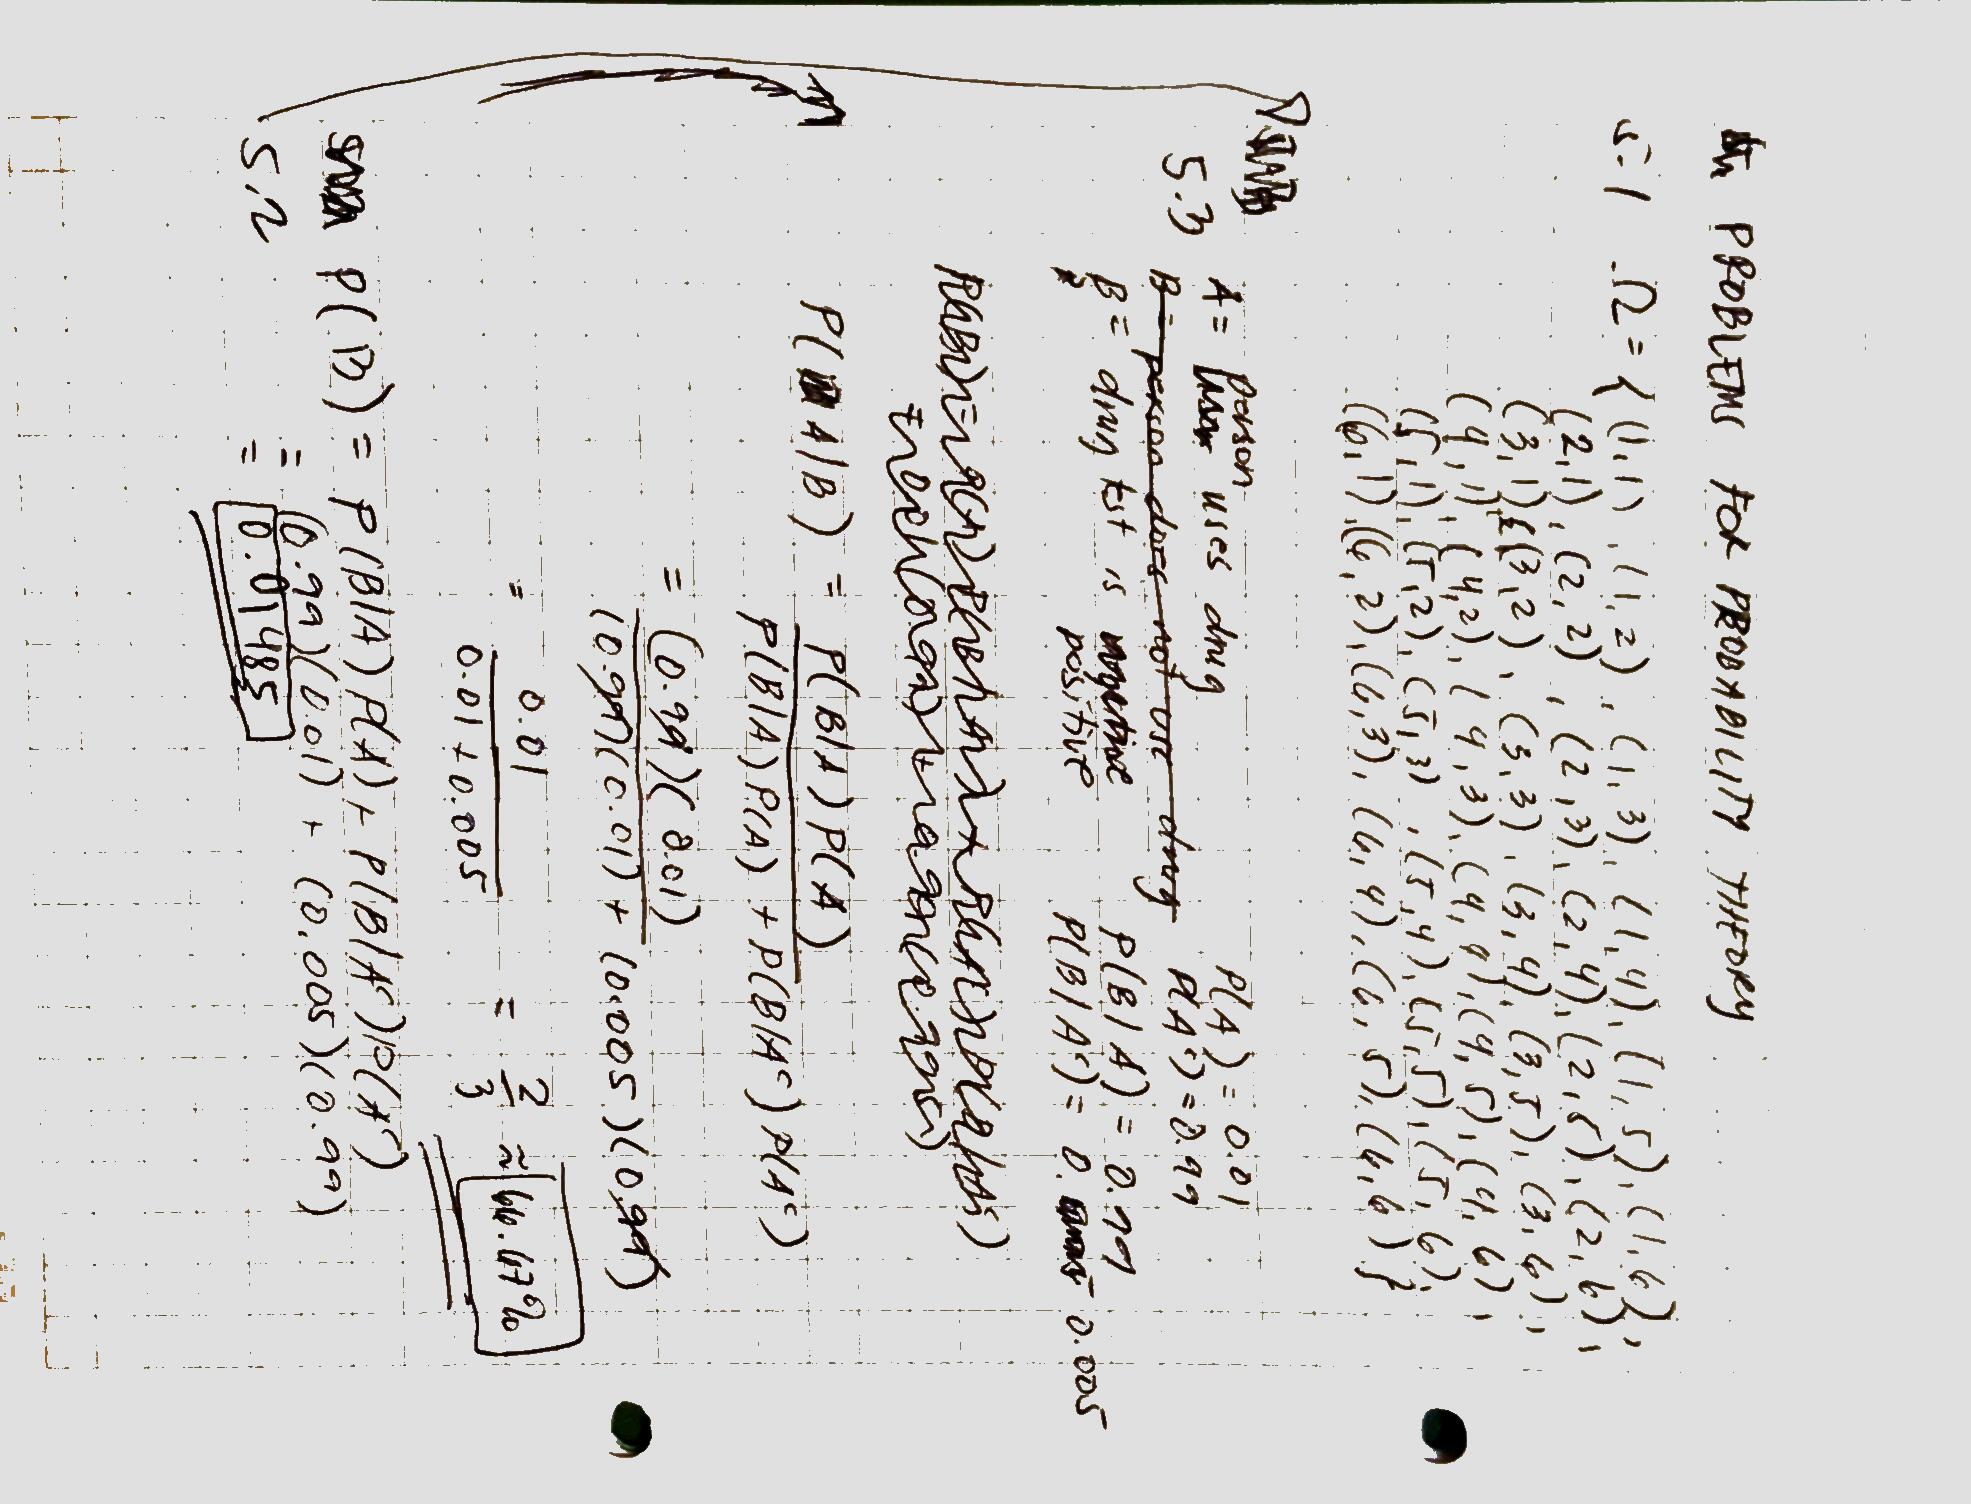 PROBLEMS FOR PROBABILITY THEORY
5.1 Ω = { (1,1), (1,2), (1,3), (1,4), (1,5), (1,6),
(2,1), (2,2), (2,3), (2,4), (2,5), (2,6),
(3,1), (3,2), (3,3), (3,4), (3,5), (3,6),
(4,1), (4,2), (4,3), (4,4), (4,5), (4,6),
(5,1), (5,2), (5,3), (5,4), (5,5), (5,6),
(6,1), (6,2), (6,3), (6,4), (6,5), (6,6) }
5.3 A = person uses drug P(A) = 0.01
B = person does not use drug P(Aᶜ) = 0.99
B = drug test is positive P(B|A) = 0.99
P(B|Aᶜ) = 0.005
P(A|B) = P(B|A)P(A)
P(B|A)P(A) + P(B|Aᶜ)P(Aᶜ)
= (0.99)(0.01)
(0.99)(0.01) + (0.005)(0.99)
= 0.01
0.01 + 0.005
= 2/3 ≈ 66.67%
P(B) = P(B|A)P(A) + P(B|Aᶜ)P(Aᶜ)
= (0.99)(0.01) + (0.005)(0.99)
5.2 = 0.01485